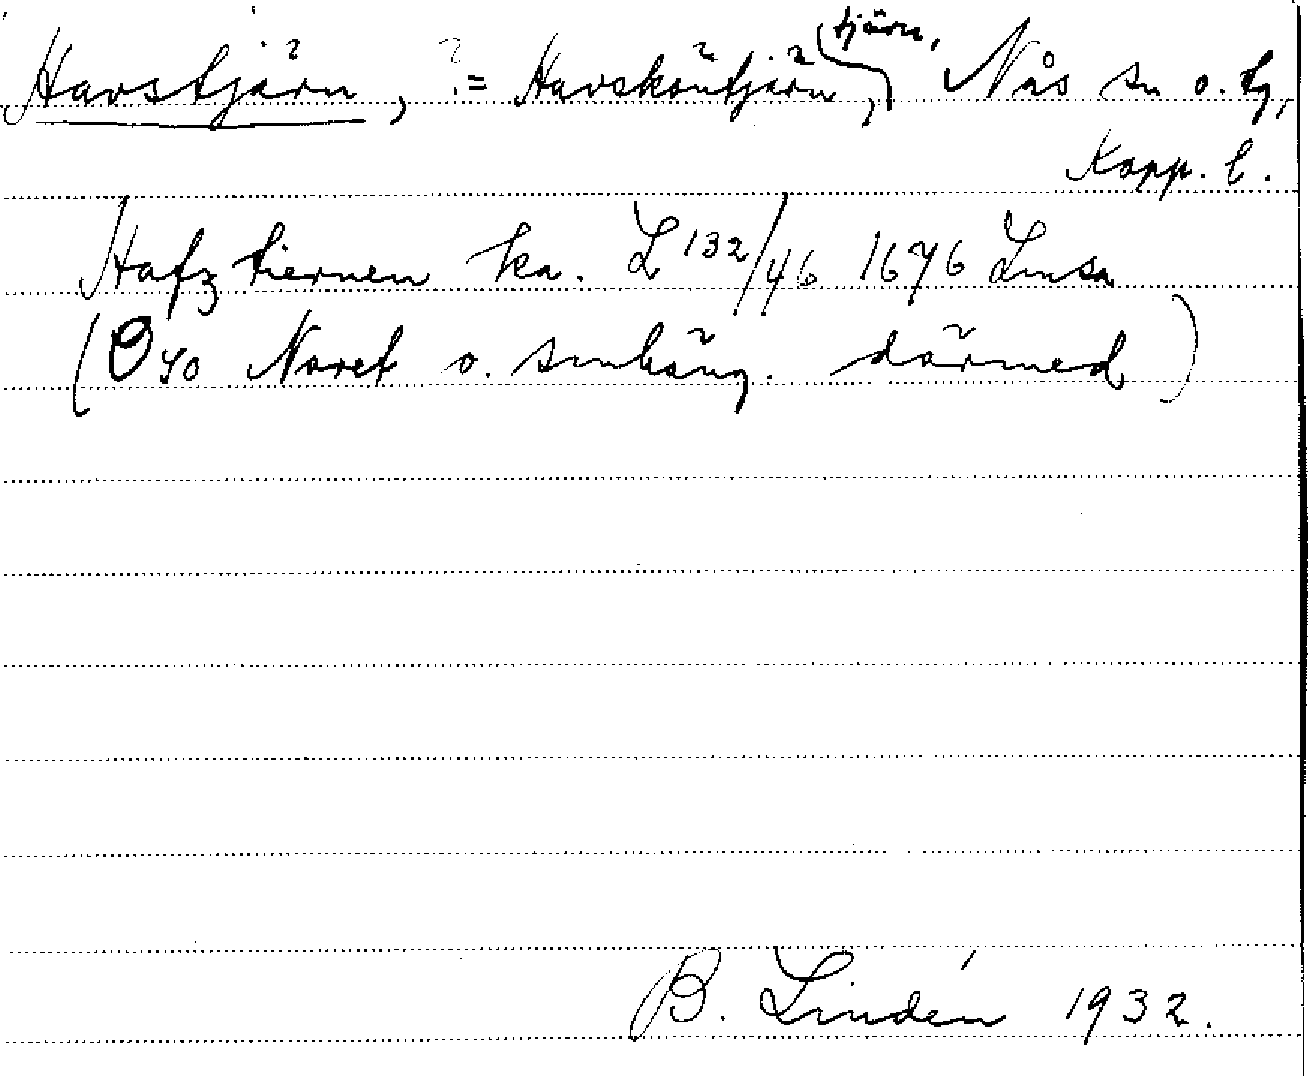 Havstjärn, ?= Havsköntjärn, tjärn, Nås sn o. tg,
Kopp. l.
Hafz tiernen ka. L 132/46 1676 Lmsa
(40 Noret o. smhäng. därmed)
B. Lindén 1932.